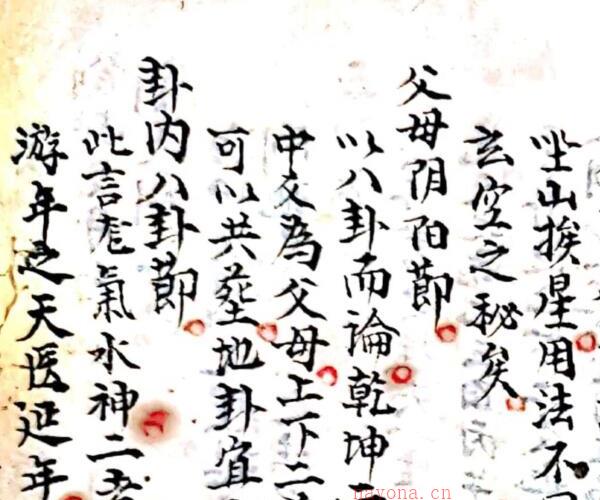 坐山挨星用法不
玄空之秘矣
父母阴阳節
以八卦而論乾坤
中爻為父母上下二
可以共茔地卦宜
卦内八卦節
此言龙氣水神二者
游年之天医延年
nayona.cn